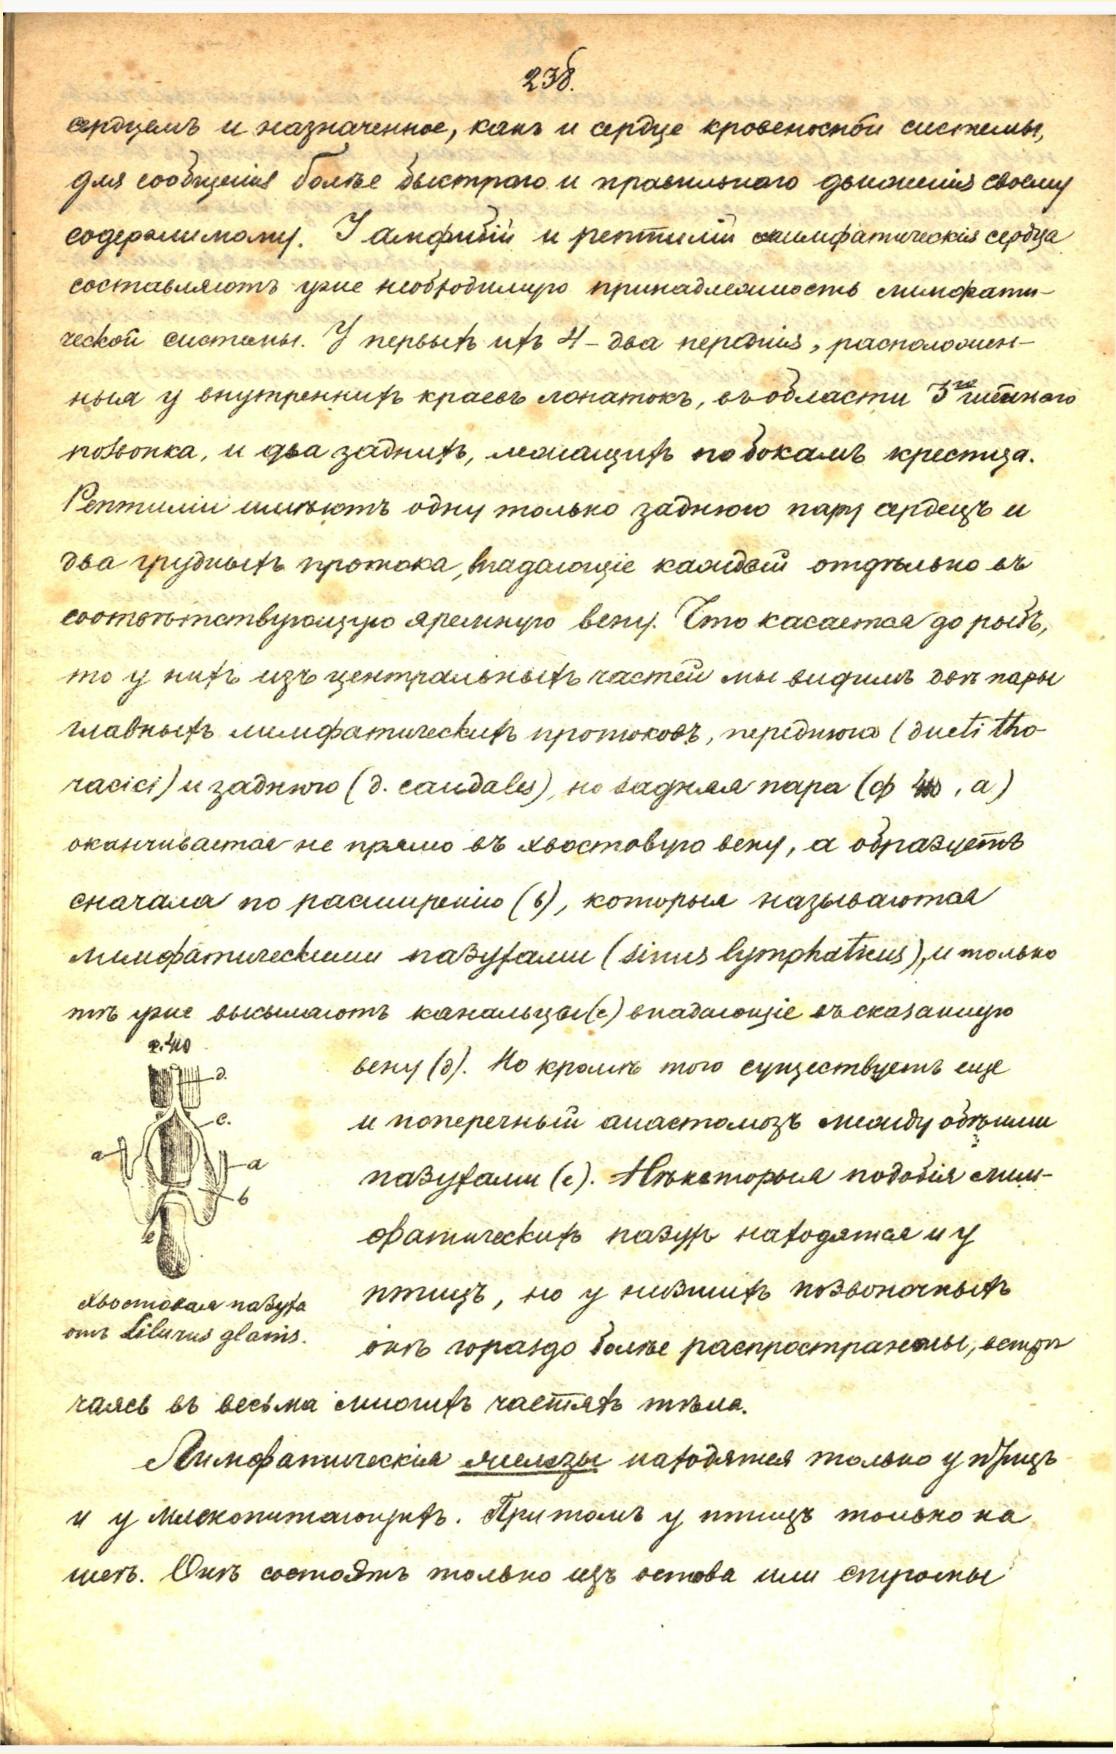 238.
сердцемъ и назначенное, какъ и сердце кровеносной системы,
для сообщенія болѣе быстраго и правильнаго движенія своему
содержимому. У амфибій и рептилій лимфатическія сердца
составляютъ уже необходимую принадлежность лимфати-
ческой системы. У первыхъ ихъ 4 – два переднія, расположен-
ныя у внутреннихъ краевъ лопатокъ, въ области 3го шейнаго
позвонка, и два заднихъ, лежащихъ по бокамъ крестца.
Рептиліи имѣютъ одну только заднюю пару сердецъ и
два грудныхъ протока, впадающіе каждый отдѣльно въ
соотвѣтствующую яремную вену. Что касается до рыбъ,
то у нихъ изъ центральныхъ частей мы видимъ двѣ пары
главныхъ лимфатическихъ протоковъ, переднюю (ducti tho-
racici) и заднюю (d. caudales), но задняя пара (ф 410, а)
оканчивается не прямо въ хвостовую вену, а образуетъ
сначала по расширенію (b), которыя называются
лимфатическими пазухами (sinus lymphaticus), и только
тѣ уже высылаютъ канальцы (c) впадающіе въ сказанную
ф. 410
вену (д). Но кромѣ того существуетъ еще
и поперечный анастомозъ между обѣими
пазухами (е). Нѣкоторыя подобія лим-
фатическихъ пазухъ находятся и у
птицъ, но у низшихъ позвоночныхъ
онѣ гораздо болѣе распространены, встрѣ
чаясь въ весьма многихъ частяхъ тѣла.
д.
c.
a
a
b
e
Хвостовая пазуха
отъ Silurus glanis.
Лимфатическія железы находятся только у птицъ
и у млекопитающихъ. Притомъ у птицъ только на
шеѣ. Онѣ состоятъ только изъ остова или стромы